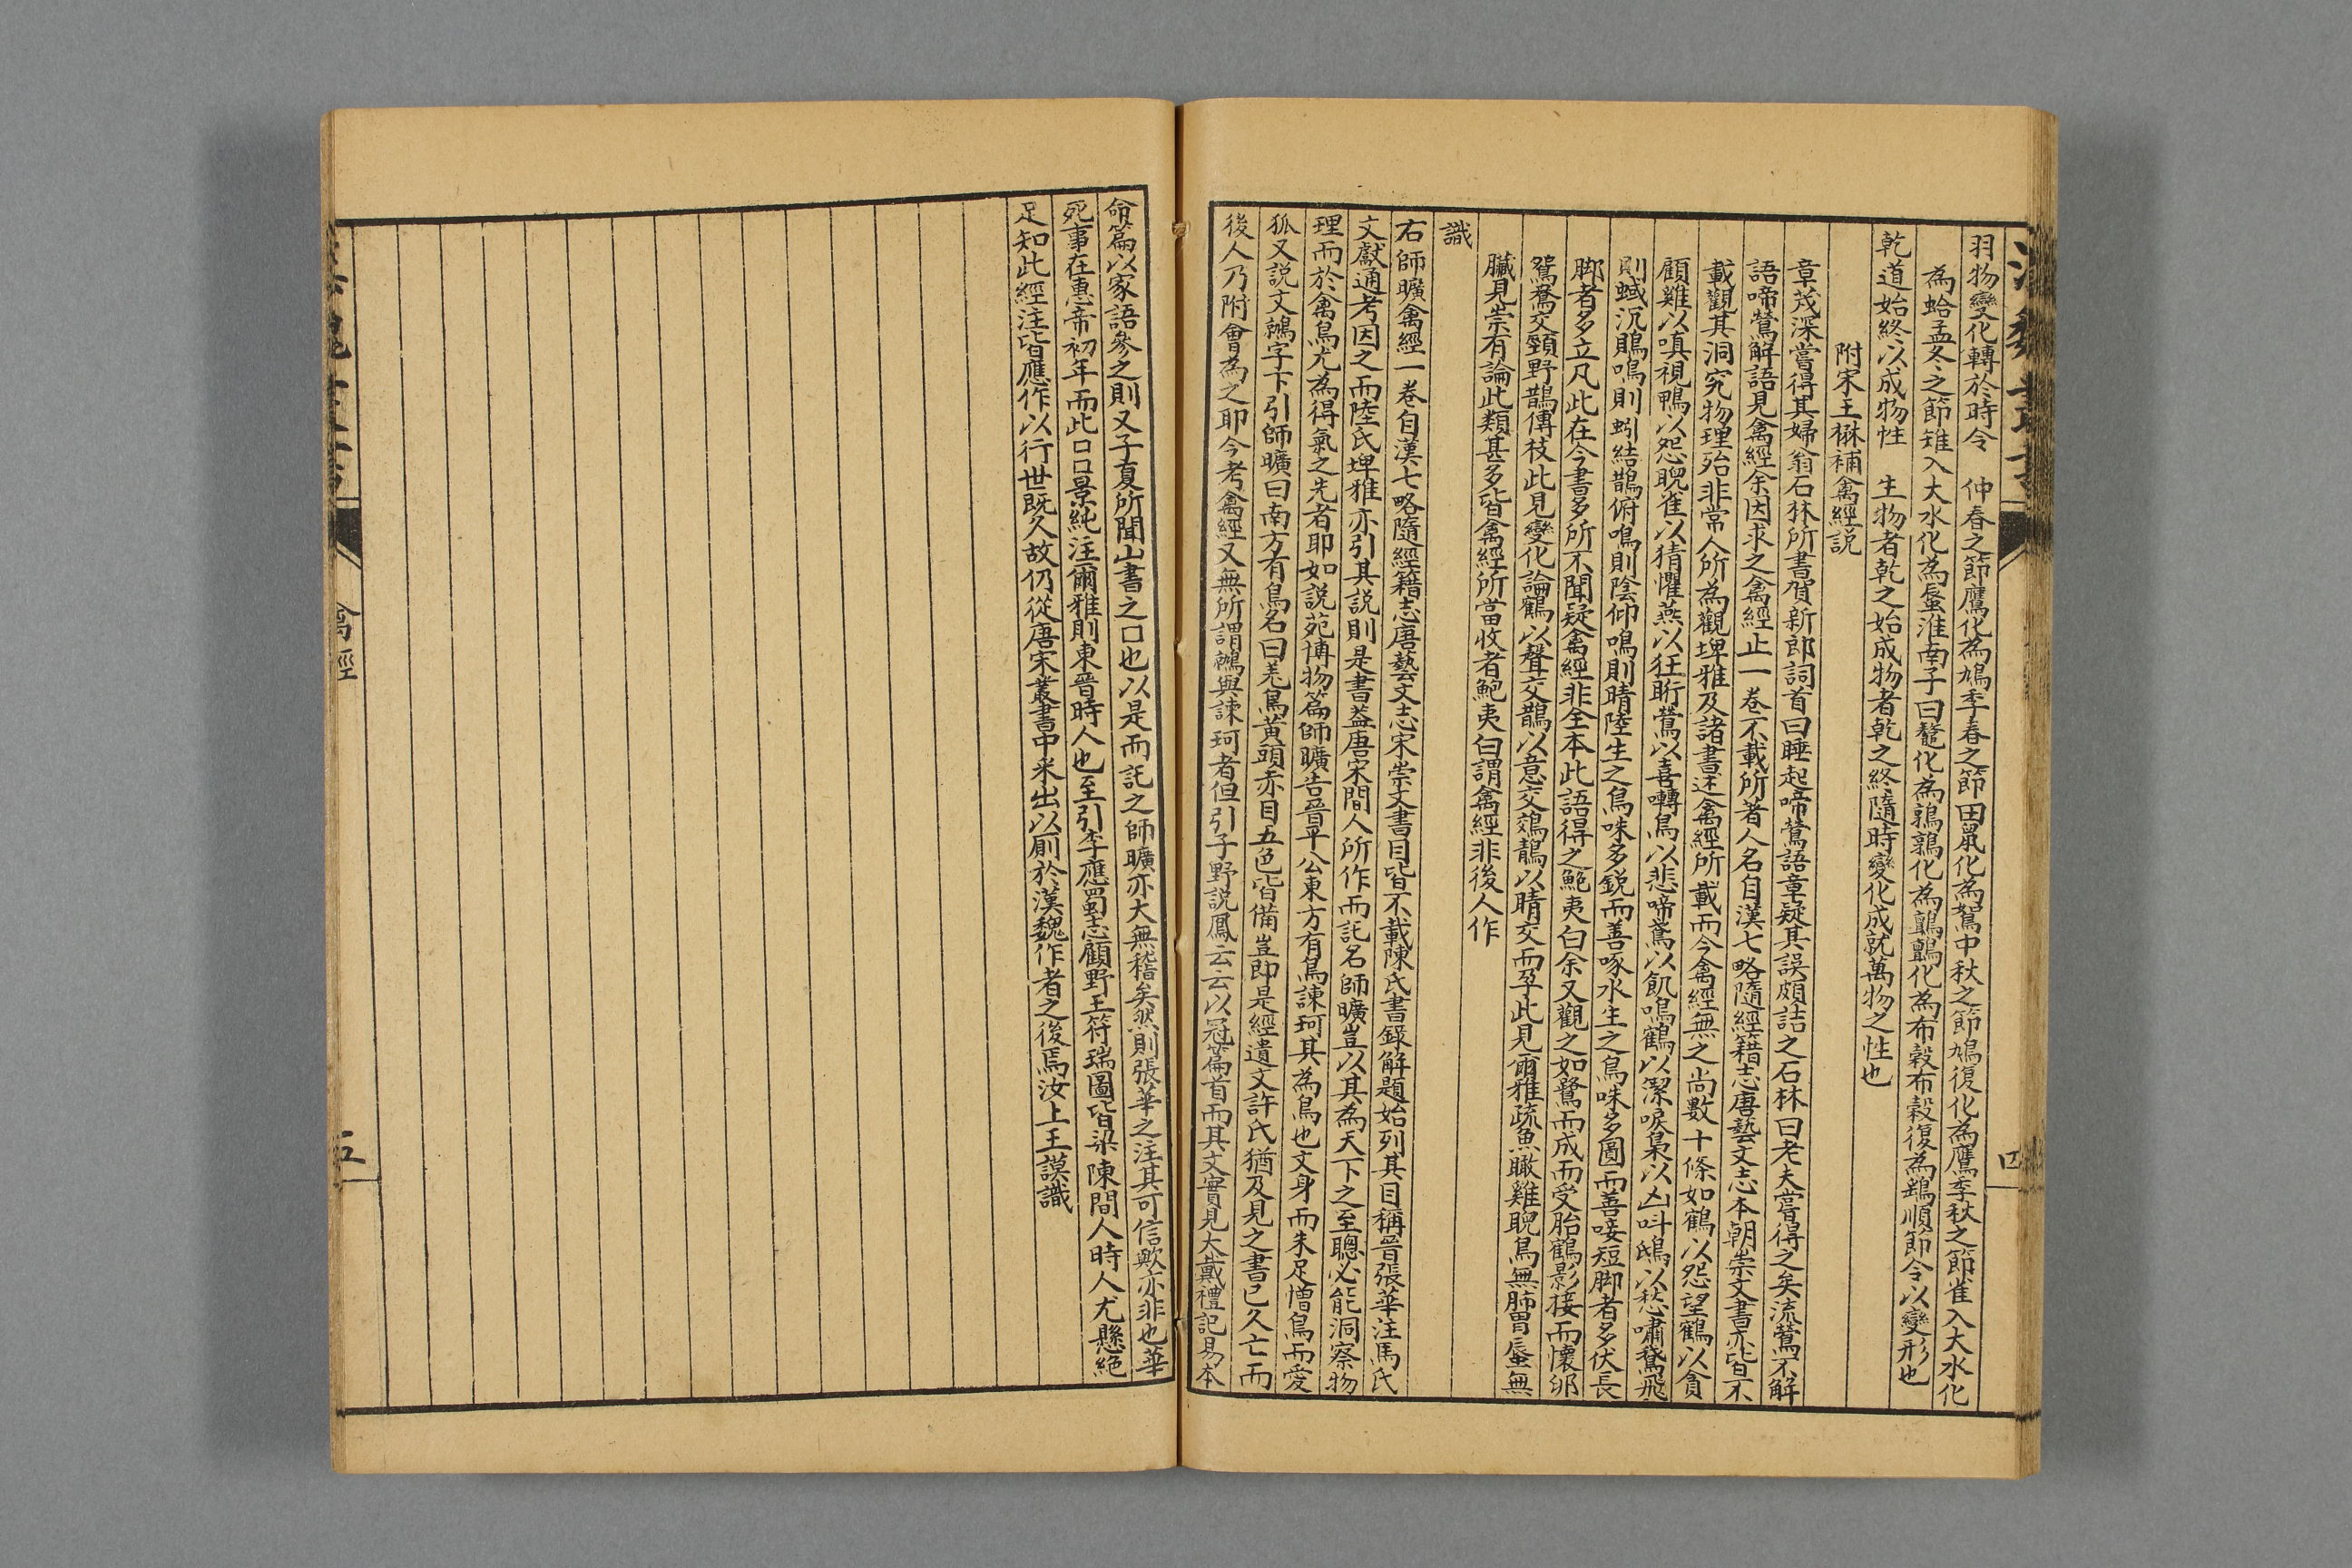 羽物變化轉於時令　仲春之節鷹化為鳩季春之節田鼠化為鴽中秋之節鳩復化為鷹季秋之節雀入大水化
為蛤孟冬之節雉入大水化為蜃淮南子曰鼇化為鶉鶉化為鸇鸇化為布穀布穀復為鷂順節令以變形也
乾道始終以成物性　生物者乾之始成物者乾之終隨時變化成就萬物之性也
附宋王楙補禽經説
章茂深嘗得其婦翁石林所書賀新郎詞首曰睡起啼鶯語章疑其誤頗詰之石林曰老夫嘗得之矣流鶯不解
語啼鶯解語見禽經余因求之禽經止一卷不載所著人名自漢七略隨經籍志唐藝文志本朝崇文書亦皆不
載觀其洞究物理殆非常人所為觀埤雅及諸書述禽經所載而今禽經無之尚數十條如鶴以怨望鶴以貪
顧雞以嗔視鴨以怒睨雀以猜懼燕以狂盻鶯以喜囀烏以悲啼鳶以飢鳴鶴以潔唳梟以凶呌鴟以愁嘯鵞飛
則蜮沉鵙鳴則蚓結鵲俯鳴則陰仰鳴則晴陸生之鳥咮多銳而善啄水生之鳥咮多圓而善唼短脚者多伏長
脚者多立凡此在今書多所不聞疑禽經非全本此語得之鮑夷白余又觀之如鷖而成而受胎鶴影接而懷卵
鴛鴦交頸野鵲傳枝此見變化論鶴以聲交鵲以意交鵁鶄以睛交而孕此見爾雅疏魚瞰雞睨鳥無肺胃蜃無
臟見崇有論此類甚多皆禽經所當收者鮑夷白謂禽經非後人作
識
右師曠禽經一卷自漢七略隨經籍志唐藝文志宋崇文書目皆不載陳氏書錄解題始列其目稱晉張華注馬氏
文獻通考因之而陸氏埤雅亦引其説則是書葢唐宋間人所作而託名師曠豈以其為天下之至聰必能洞察物
理而於禽鳥尤為得氣之先者耶如説苑博物篇師曠告晉平公東方有鳥諫珂其為鳥也文身而朱足憎鳥而愛
狐又説文鷫字下引師曠曰南方有鳥名曰羌鳥黃頭赤目五色皆備豈即是經遺文許氏猶及見之書已久亡而
後人乃附會為之耶今考禽經又無所謂鷫與諫珂者但引子野説鳳云云以冠篇首而其文實見大戴禮記易本
命篇以家語參之則又子夏所聞山書之口也以是而託之師曠亦大無稽矣然則張華之注其可信歟亦非也華
死事在惠帝初年而此口口景純注爾雅則東晉時人也至引李應蜀志顧野王符瑞圖皆梁陳間人時人尤懸絕
足知此經注皆應作以行世既久故仍從唐宋叢書中釆出以厠於漢魏作者之後焉汝上王謨識
禽經
四
五